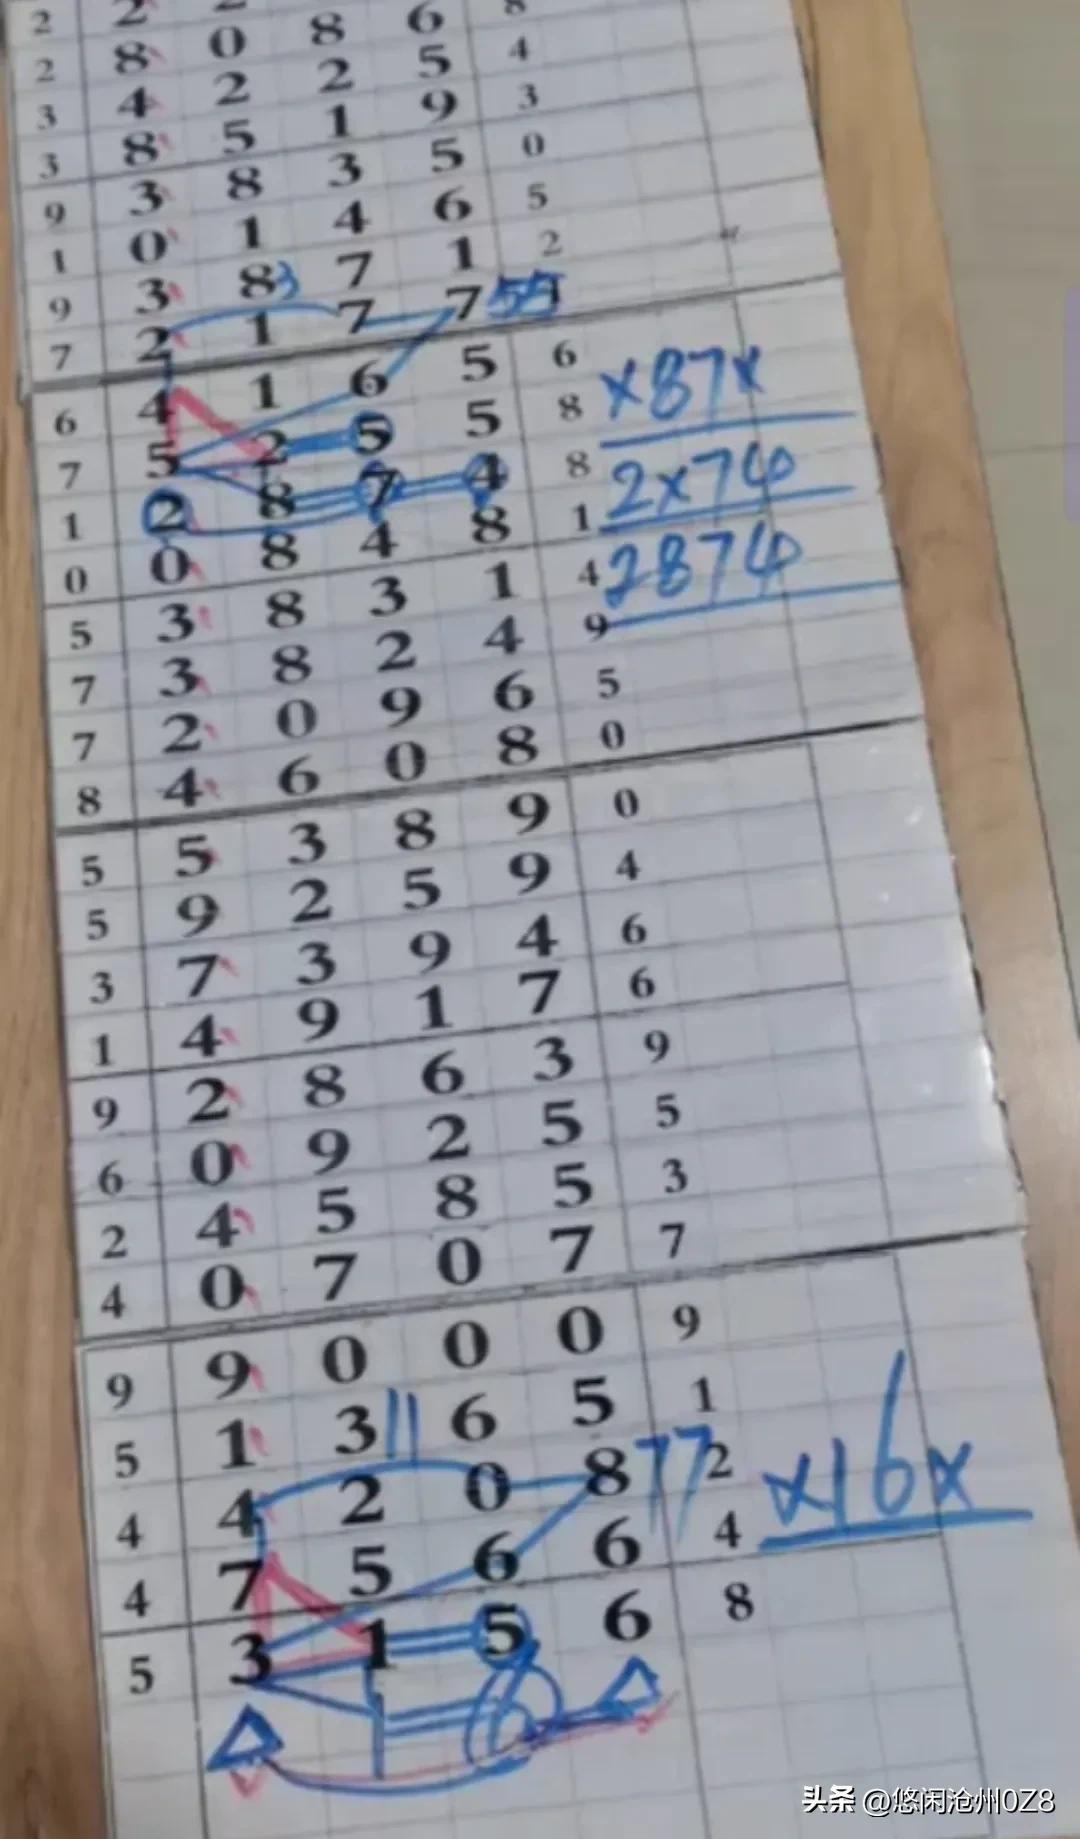 2 2 2
2 8 0 8 6 8
3 4 2 2 5 4
3 8 5 1 9 3
9 3 8 3 5 0
1 0 1 4 6 5
9 3 8 3 7 1 2
7 2 1 7 7 55
6 4 1 6 5 6 ×87×
7 5 2 5 5 8
1 2 8 7 4 8 2×74
0 0 8 4 8 1 2874
5 3 8 3 1 4
7 3 8 2 4 9
7 2 0 9 6 5
8 4 6 0 8 0
5 5 3 8 9 0
5 9 2 5 9 4
3 7 3 9 4 6
1 4 9 1 7 6
9 2 8 6 3 9
6 0 9 2 5 5
2 4 5 8 5 3
4 0 7 0 7 7
9 9 0 0 0 9
5 1 3 11 6 5 1
4 4 2 0 8 77 2 ×16×
4 7 5 6 6 4
5 3 1 5 6 8
1 6
头条 @悠闲沧州0Z8